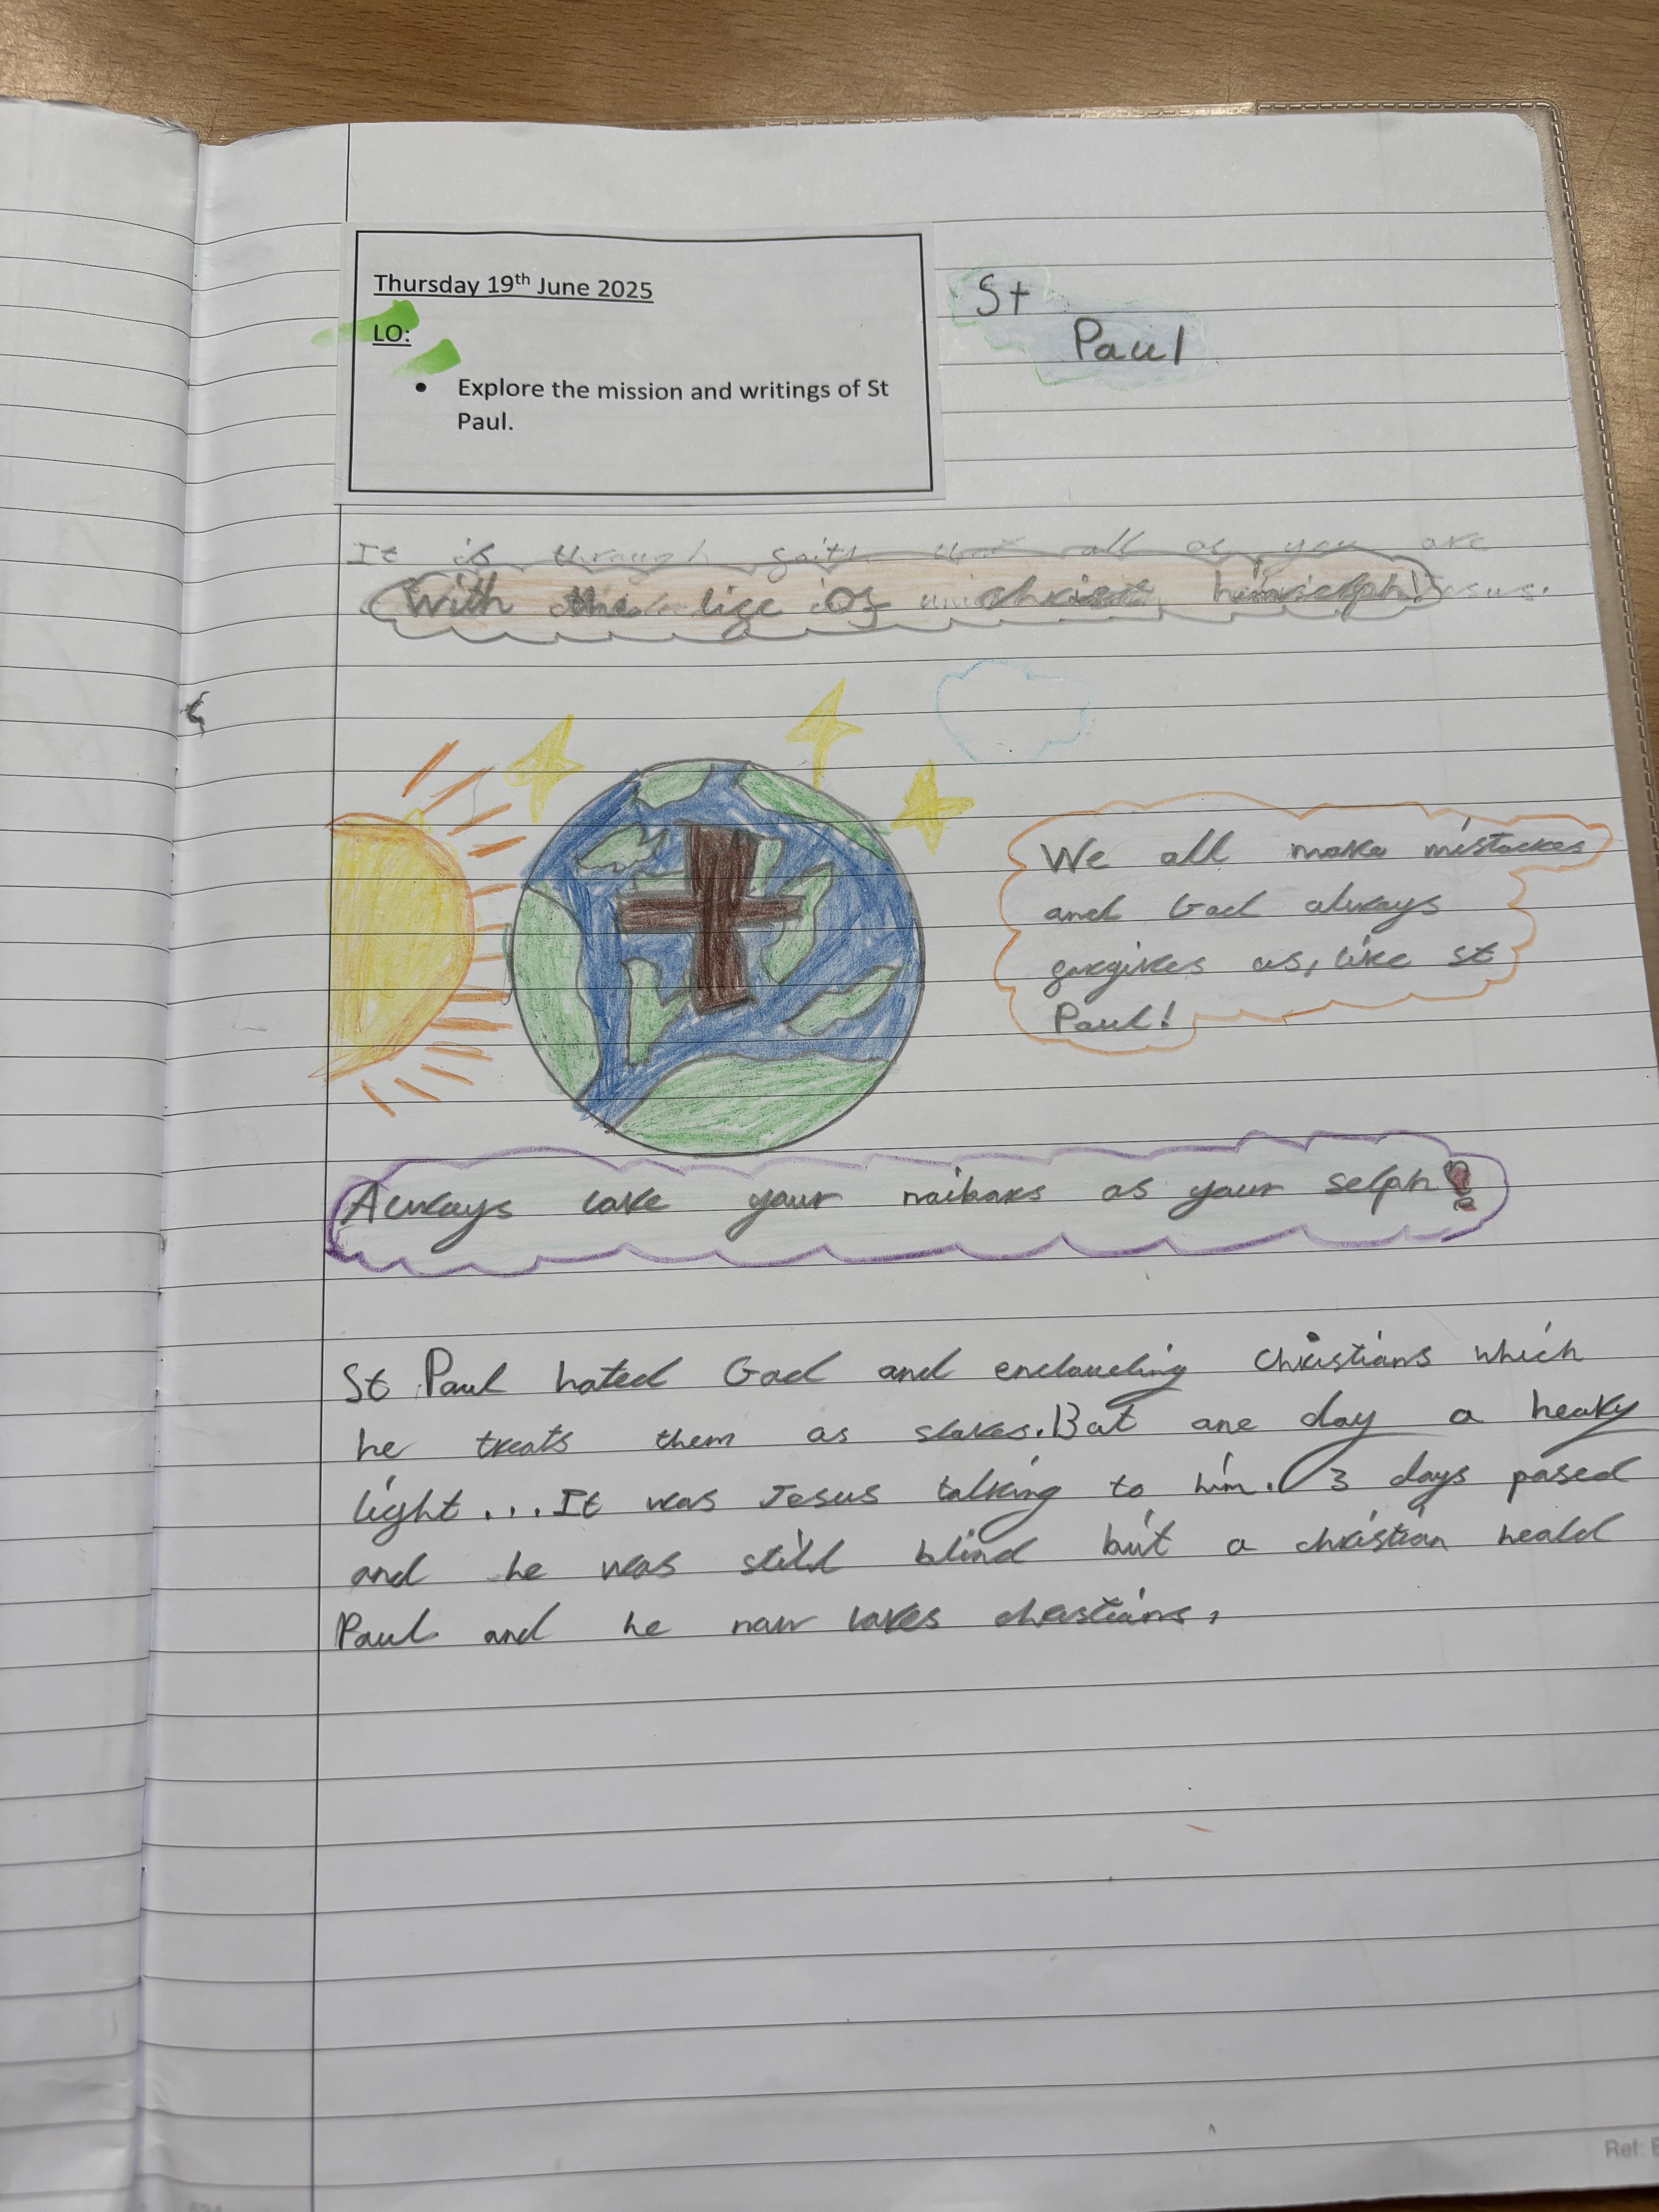 Thursday 19th June 2025
LO:
• Explore the mission and writings of St
Paul.
St
Paul
It is through all you are
With the lige Of christ himselph! Jesus.
We all make mistackes
and God always
gorgives us, like st
Paul!
Always love your naibors as your selph!
St Paul hated God and christians which
he treats them as slaves. But one day a heavy
light... It was Jesus talking to him. 3 days pased
and he was still blind but a christian heald
Paul and he now loves christians.
Ref: